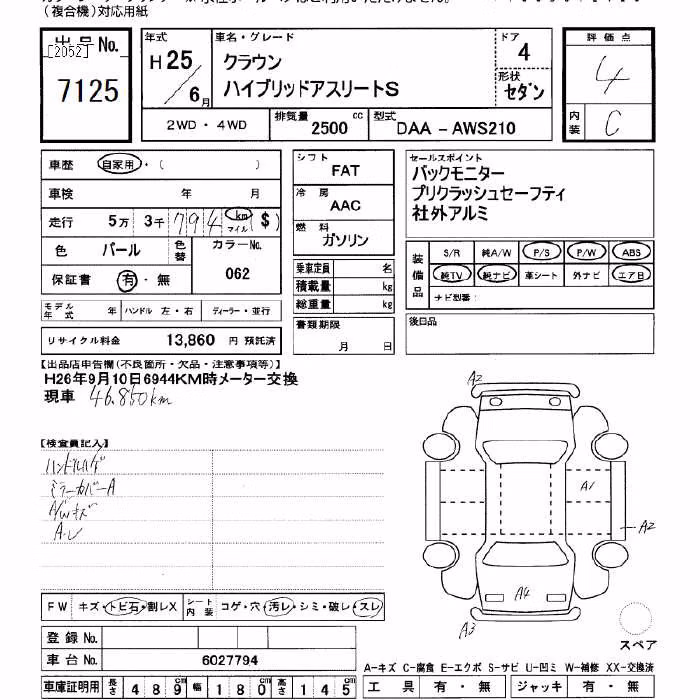 （複合機）対応用紙
出品No.
[2052]
7125
年式
H25/6月
車名・グレード
クラウン
ハイブリッドアスリートS
ドア
4
形状
セダン
評価点
4
内装
C
2WD・4WD
排気量
2500 cc
型式
DAA－AWS210
車歴 自家用・（ ）
車検 年 月
走行 5万 3千 794 km マイル ($)
色 パール 色替 カラーNo. 062
保証書 有・無
モデル年式 年 ハンドル 左・右 ディーラー・並行
リサイクル料金 13,860 円 預託済
シフト
FAT
冷房
AAC
燃料
ガソリン
乗車定員 名
積載量 kg
総重量 kg
書類期限
月 日
セールスポイント
バックモニター
プリクラッシュセーフティ
社外アルミ
装備品
S/R 純A/W P/S P/W ABS
純TV 純ナビ 革シート 外ナビ エアB
ナビ型番：
後日品
【出品店申告欄（不良箇所・欠品・注意事項等）】
H26年9月10日6944KM時メーター交換
現車 46,850km
【検査員記入】
ハンドルハゲ
ミラーカバーA
A/Wキズ
A-L
A2
A1
A2
A4
A3
スペア
FW キズ・トビ石・割レX シート内装 コゲ・穴・汚レ・シミ・破レ・スレ
登録No.
車台No. 6027794
車庫証明用 長さ 489cm 幅 180cm 高さ 145cm
A−キズ C−腐食 E−エクボ S−サビ U−凹ミ W−補修 XX−交換済
工具 有・無 ジャッキ 有・無